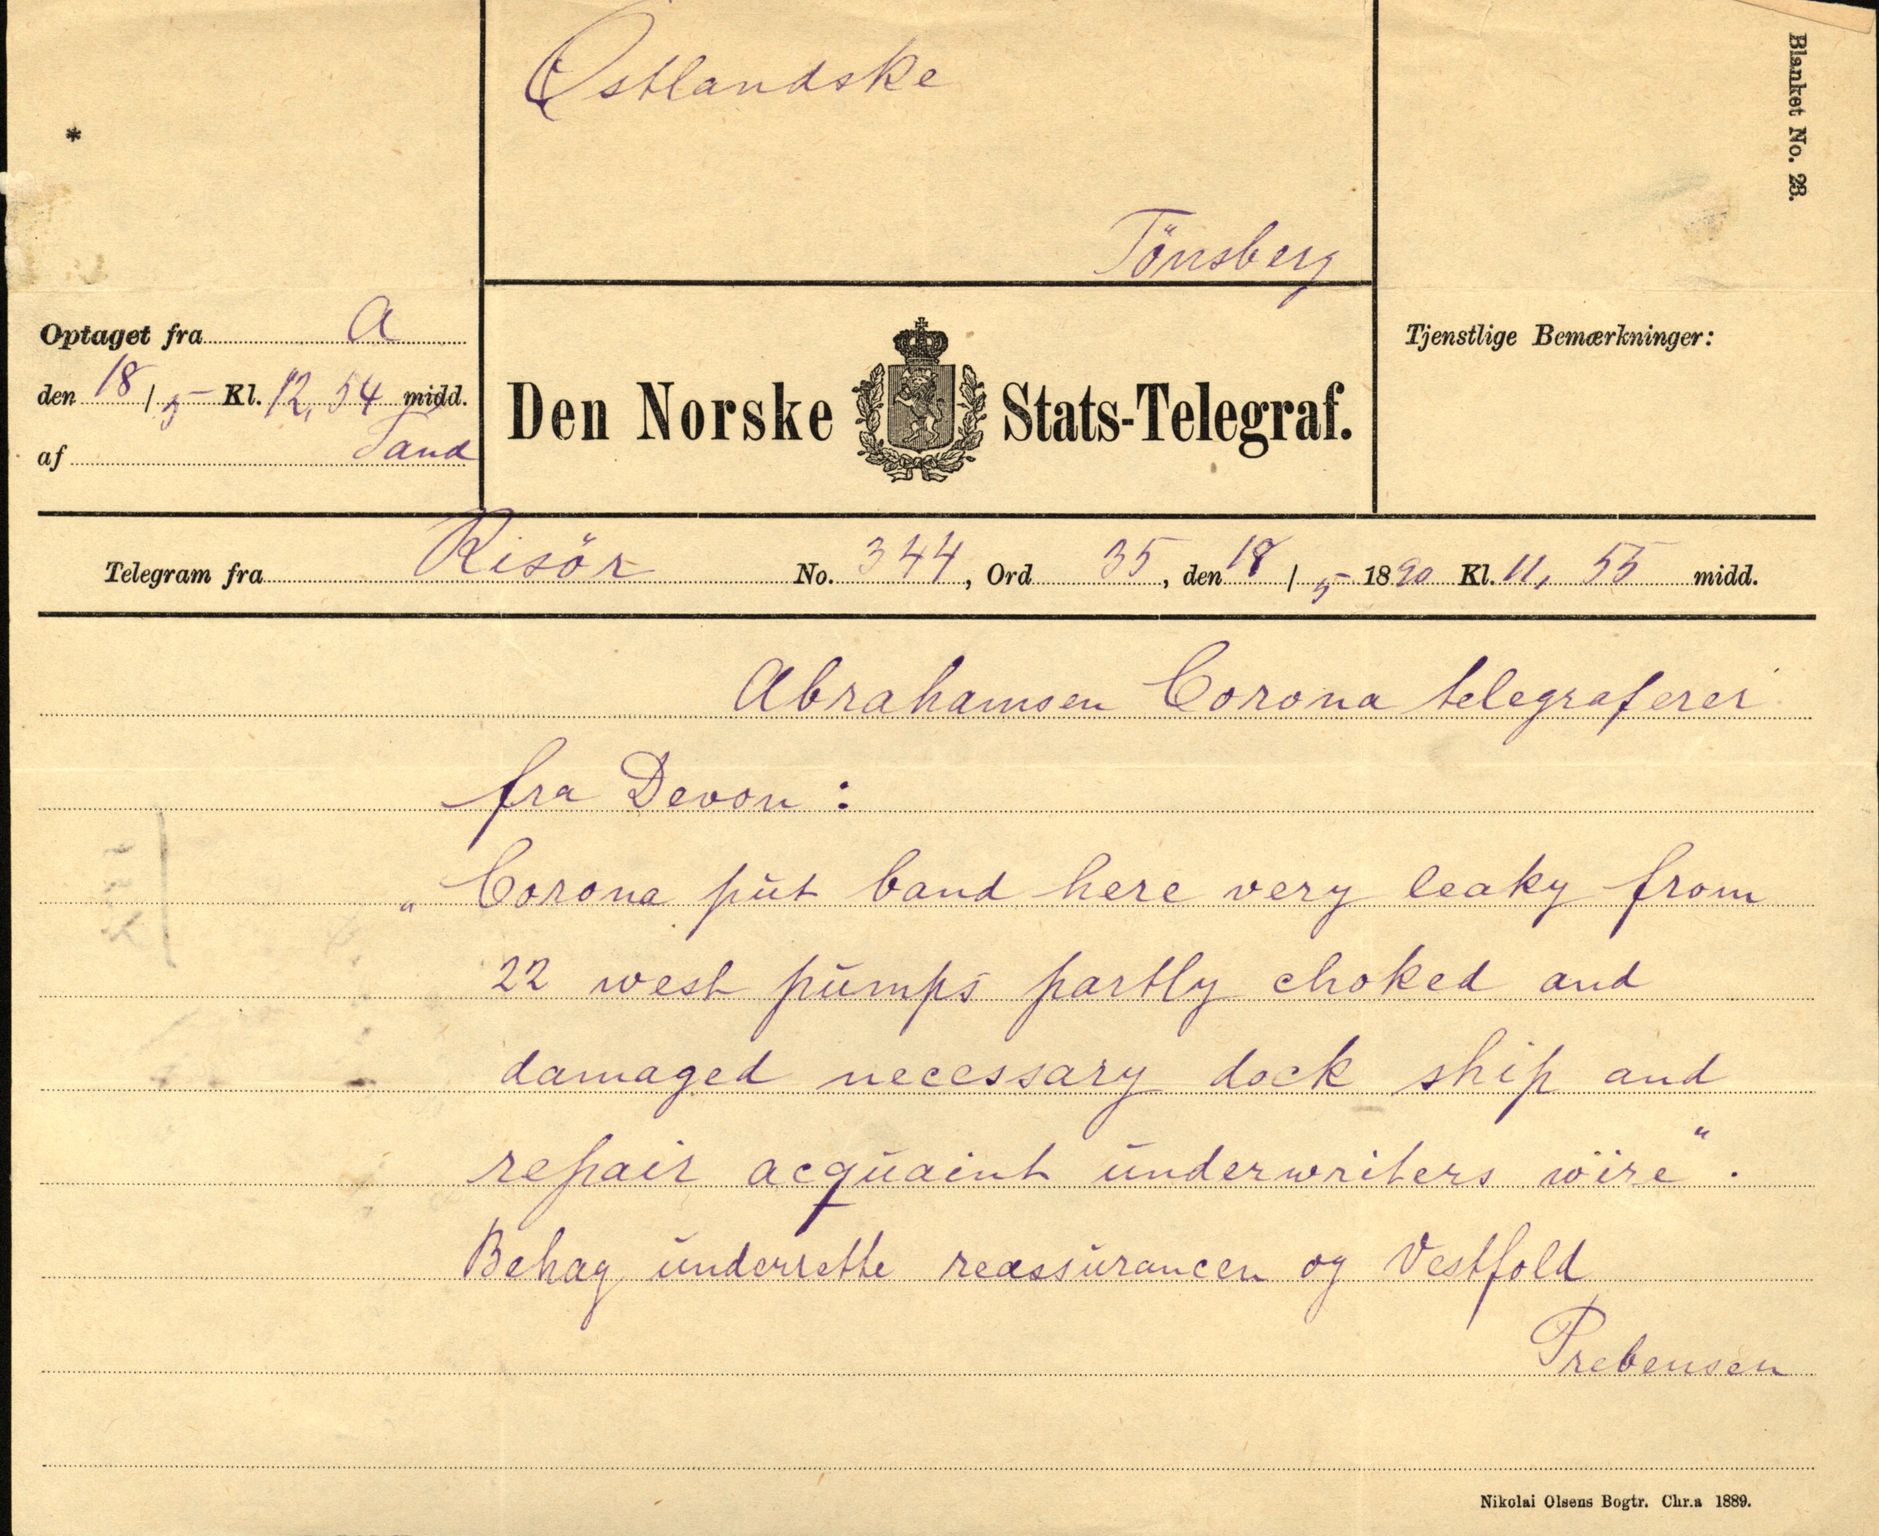 Østlandske
Blanket No. 23.
*
Tönsberg
Optaget fra A
den 18/5 Kl. 12,54 midd.
af Tand
Den Norske Stats-Telegraf.
Tjenstlige Bemærkninger:
Telegram fra Risör No. 344, Ord 35, den 18/5 1890 Kl. 11,55 midd.
Abrahamsen Corona telegraferer
fra Devon:
„Corona put band here very leaky from
22 west pumps partly choked and
damaged necessary dock ship and
repair acquaint underwriters wire“.
Behag underrette reassurancen og Vestfold
Prebensen
Nikolai Olsens Bogtr. Chr.a 1889.